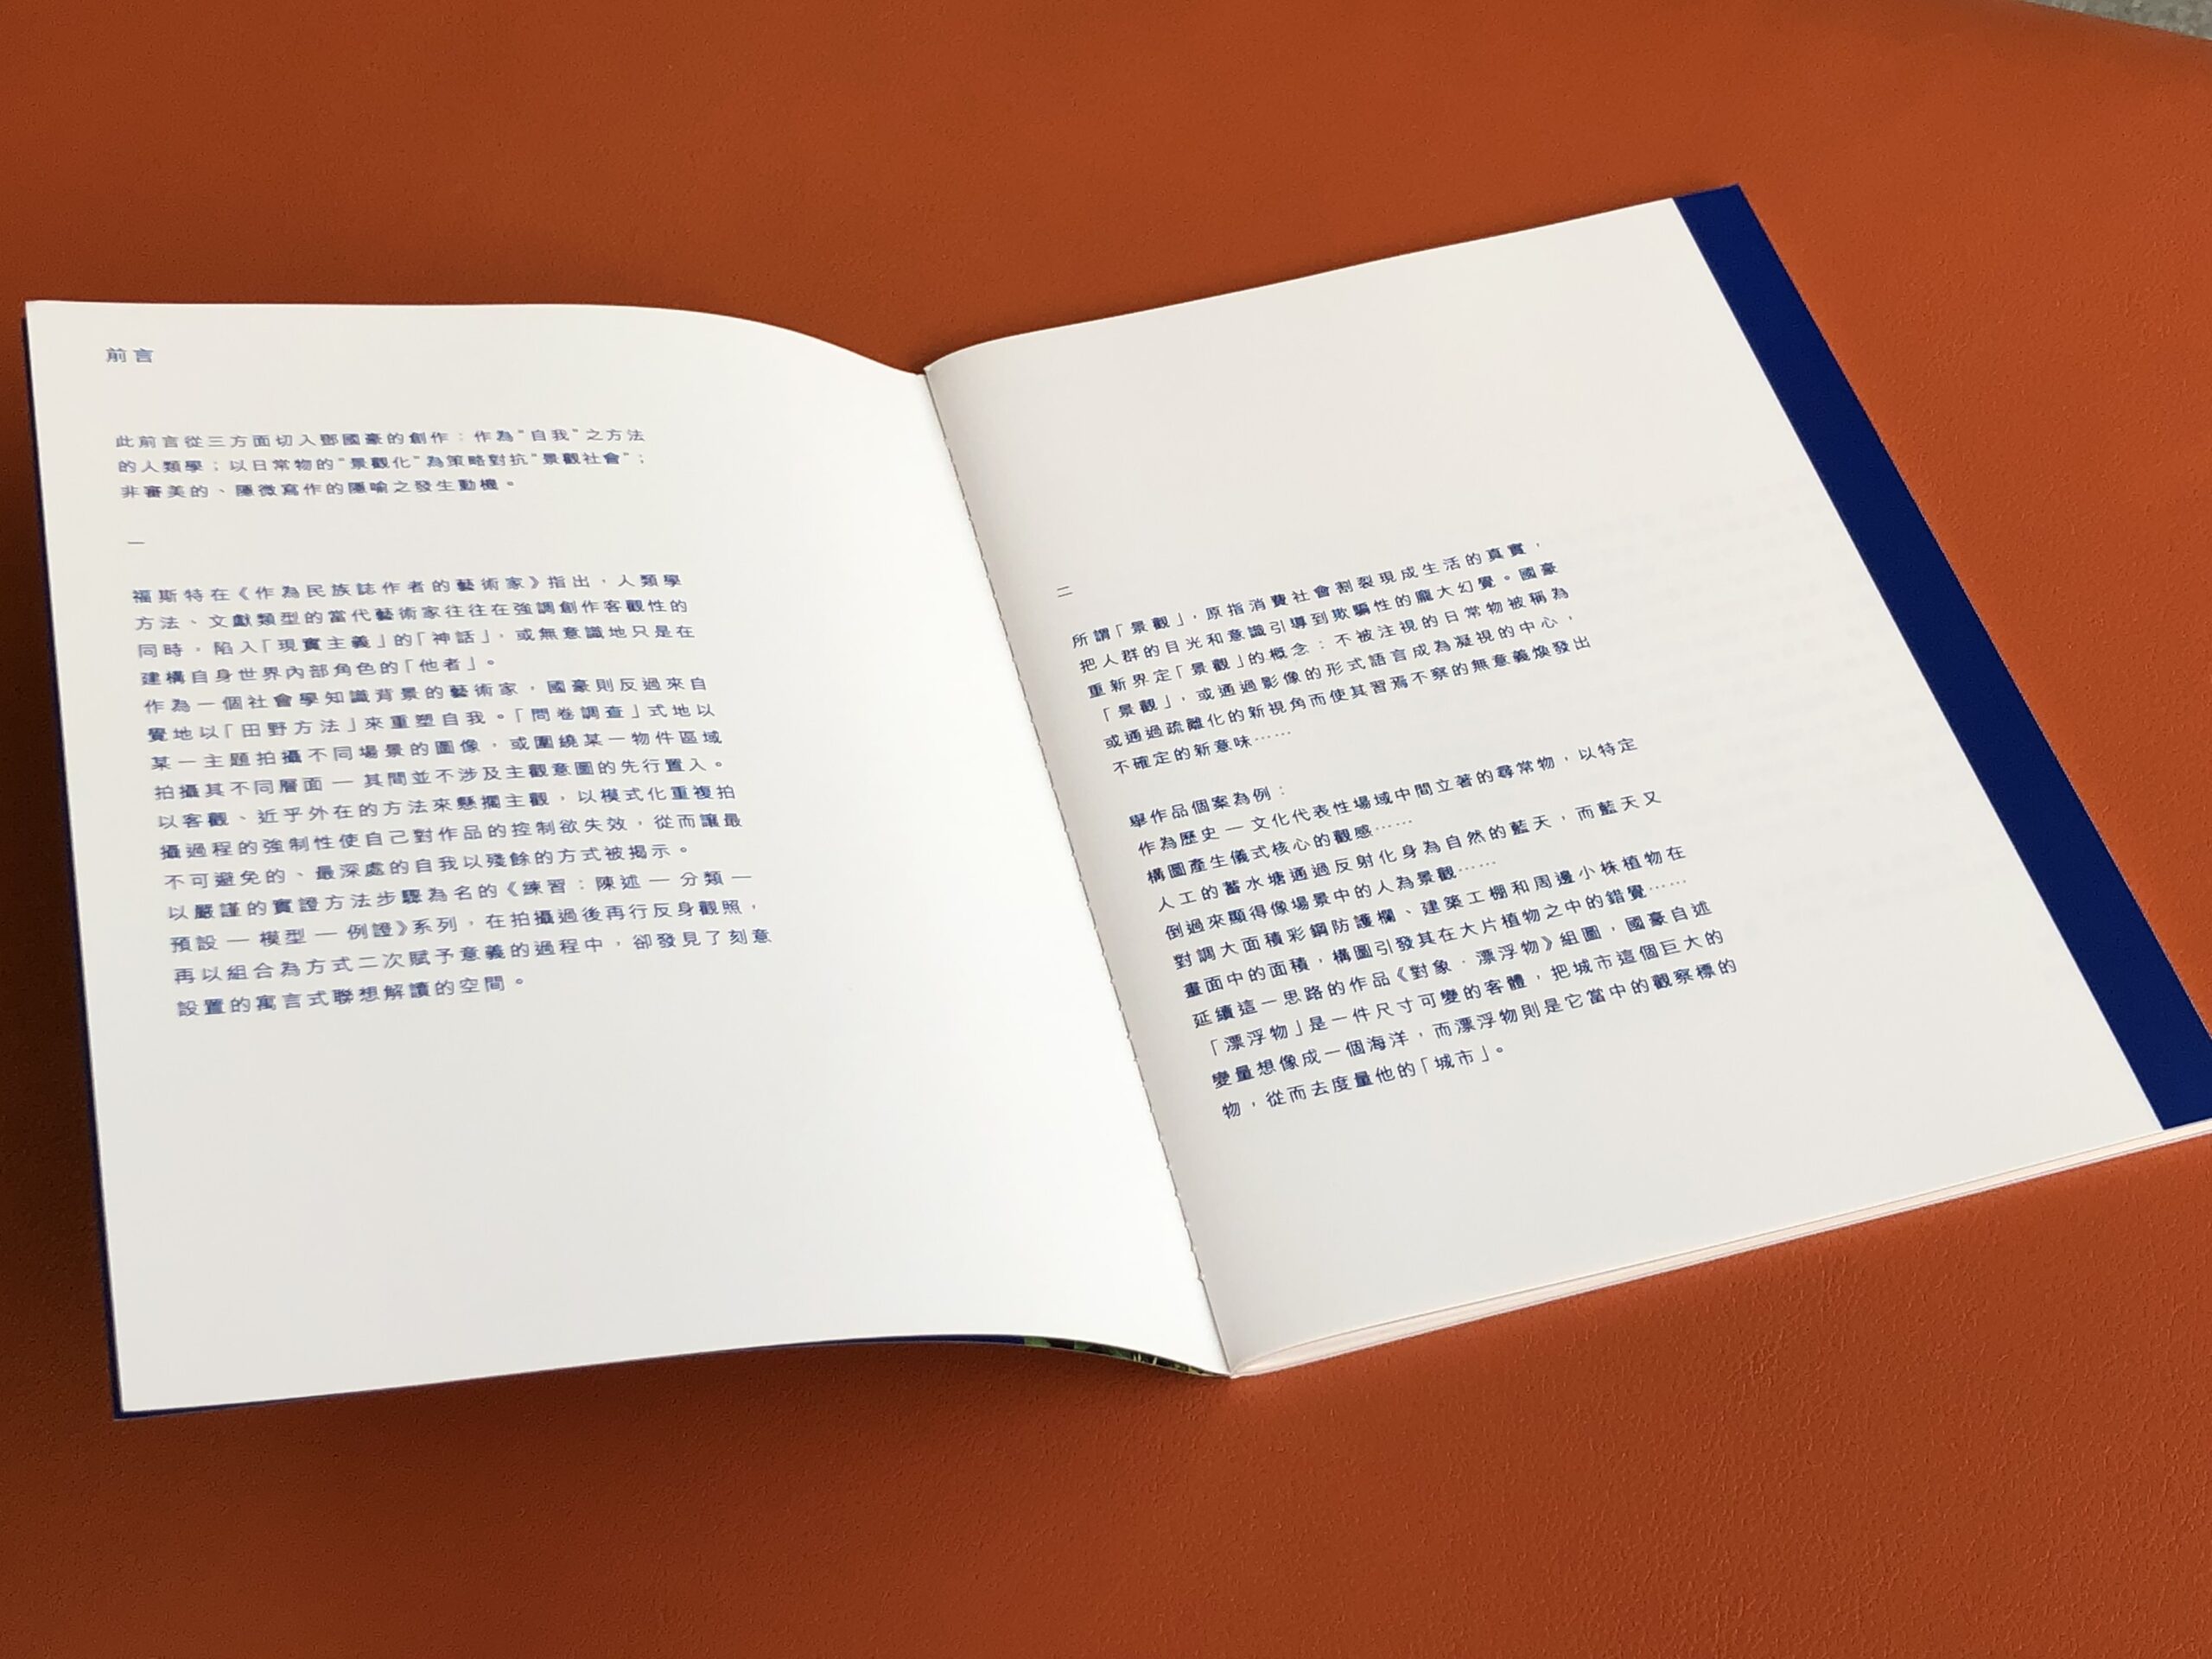 前言
此前言從三方面切入鄧國豪的創作：作為“自我”之方法
的人類學；以日常物的“景觀化”為策略對抗“景觀社會”；
非審美的、隱微寫作的隱喻之發生動機。
一
福斯特在《作為民族誌作者的藝術家》指出，人類學
方法、文獻類型的當代藝術家往往在強調創作客觀性的
同時，陷入「現實主義」的「神話」，或無意識地只是在
建構自身世界內部角色的「他者」。
作為一個社會學知識背景的藝術家，國豪則反過來自
覺地以「田野方法」來重塑自我。「問卷調查」式地以
某一主題拍攝不同場景的圖像，或圍繞某一物件區域
拍攝其不同層面 — 其間並不涉及主觀意圖的先行置入。
以客觀、近乎外在的方法來懸擱主觀，以模式化重複拍
攝過程的強制性使自己對作品的控制欲失效，從而讓最
不可避免的、最深處的自我以殘餘的方式被揭示。
以嚴謹的實證方法步驟為名的《練習：陳述 — 分類 —
預設 — 模型 — 例證》系列，在拍攝過後再行反身觀照，
再以組合為方式二次賦予意義的過程中，卻發見了刻意
設置的寓言式聯想解讀的空間。
二
所謂「景觀」，原指消費社會割裂現成生活的真實，
把人群的目光和意識引導到欺騙性的龐大幻覺。國豪
重新界定「景觀」的概念：不被注視的日常物被稱為
「景觀」，或通過影像的形式語言成為凝視的中心，
或通過疏離化的新視角而使其習焉不察的無意義煥發出
不確定的新意味……
舉作品個案為例：
作為歷史 — 文化代表性場域中間立著的尋常物，以特定
構圖產生儀式核心的觀感……
人工的蓄水塘通過反射化身為自然的藍天，而藍天又
倒過來顯得像場景中的人為景觀……
對調大面積彩鋼防護欄、建築工棚和周邊小株植物在
畫面中的面積，構圖引發其在大片植物之中的錯覺……
延續這一思路的作品《對象 · 漂浮物》組圖，國豪自述
「漂浮物」是一件尺寸可變的客體，把城市這個巨大的
變量想像成一個海洋，而漂浮物則是它當中的觀察標的
物，從而去度量他的「城市」。